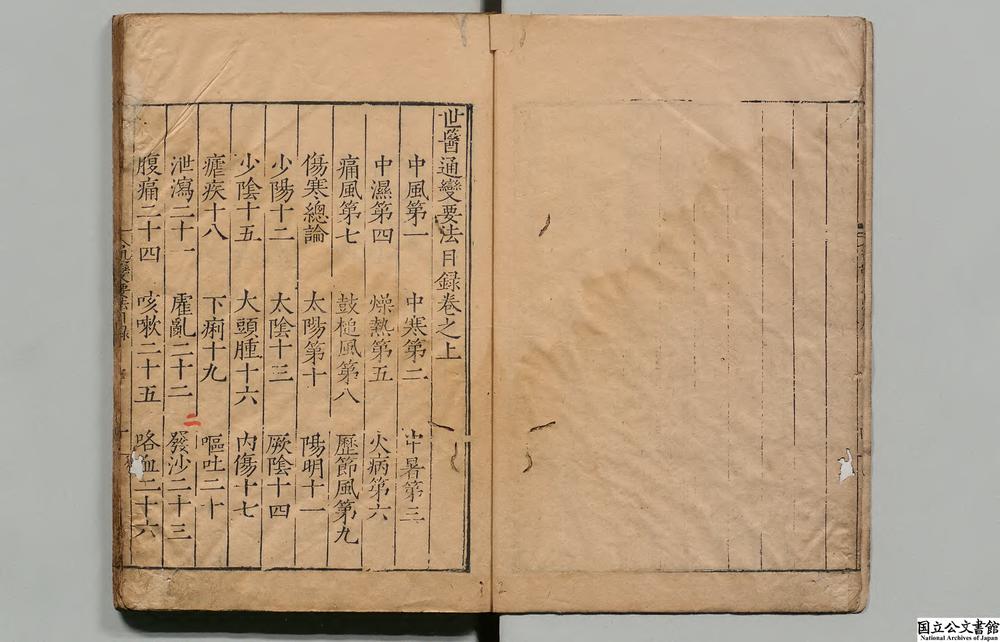 世醫通變要法目録卷之上
中風第一 中寒第二 中暑第三
中濕第四 燥熱第五 火病第六
痛風第七 鼓槌風第八 歷節風第九
傷寒總論 太陽第十 陽明十一
少陽十二 太陰十三 厥陰十四
少陰十五 大頭腫十六 内傷十七
瘧疾十八 下痢十九 嘔吐二十
泄瀉二十一 霍亂二十二 發沙二十三
二
腹痛二十四 咳嗽二十五 咯血二十六
国立公文書館
National Archives of Japan